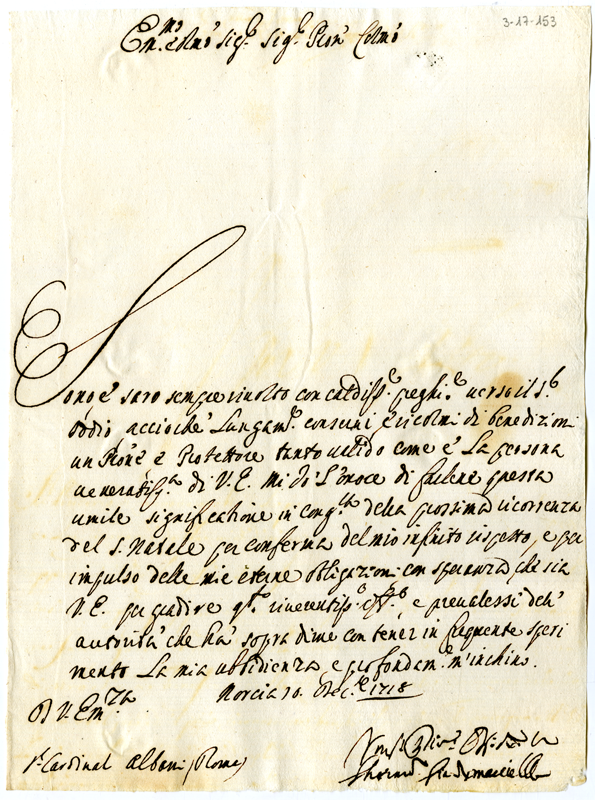 3-17-153
Em.mo e Rmo Sig.r Sig.r Pron Colmo
Sono, e sarò sempre rivolto con caldiss.e preghi.e verso il S.r
Iddio acciochè lungam.e conservi e ricolmi di benedizioni
un Prone e Protettore tanto valido come è La persona
veneratiss.a di V. E. Mi dò L'onore di farlene questa
umile significatione in cong.ra della prossima ricorrenza
del S. Natale per conferma del mio infinito rispetto, e per
impulso delle mie eterne obligazioni con speranza che sia
V. E. per gradire q.to riverentiss.o e prevalersi dell'
autorità che hà sopra di me con tener in frequente speri
mento La mia ubbidienza e profondam.e m'inchino.
Norcia 10. Dec.e 1718
Di V. Em.za
S.r Cardinal Albani (Roma)